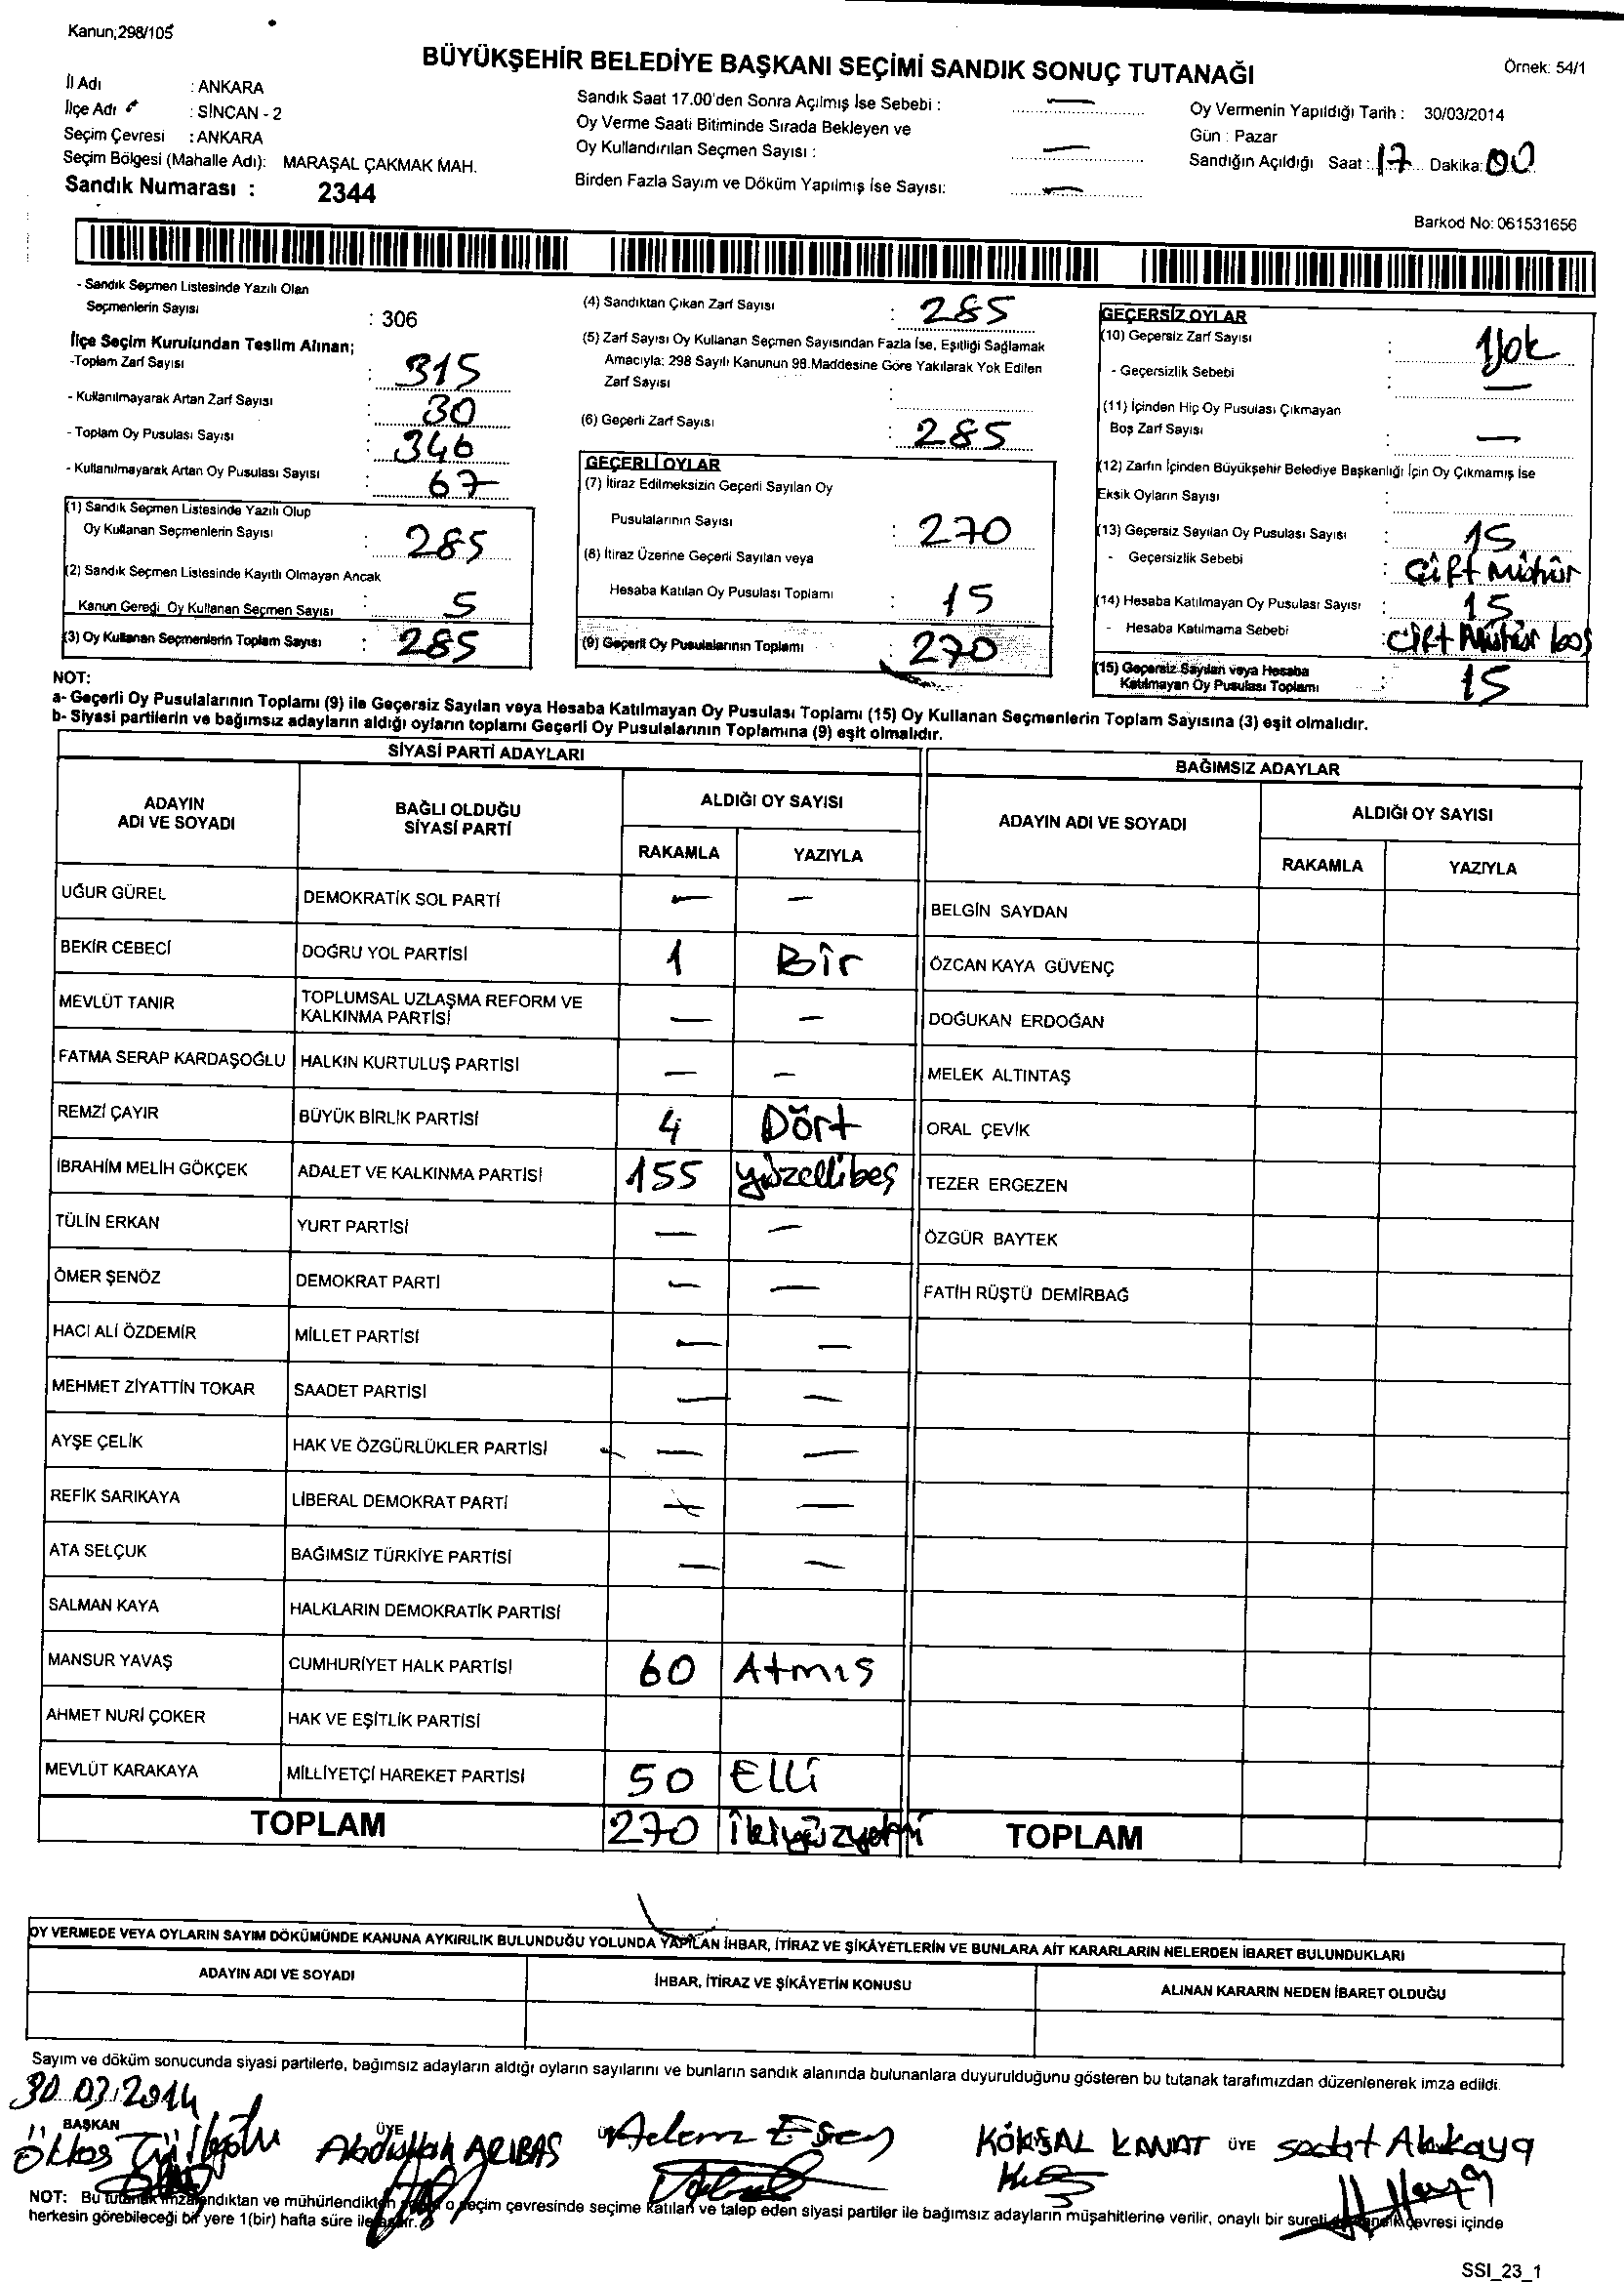 Kanun;298/105
BÜYÜKŞEHİR BELEDİYE BAŞKANI SEÇİMİ SANDIK SONUÇ TUTANAĞI
Örnek: 54/1
İl Adı : ANKARA
İlçe Adı : SİNCAN - 2
Seçim Çevresi : ANKARA
Seçim Bölgesi (Mahalle Adı): MARAŞAL ÇAKMAK MAH.
Sandık Numarası : 2344
Sandık Saat 17.00'den Sonra Açılmış İse Sebebi : —
Oy Verme Saati Bitiminde Sırada Bekleyen ve
Oy Kullandırılan Seçmen Sayısı : —
Birden Fazla Sayım ve Döküm Yapılmış İse Sayısı: —
Oy Vermenin Yapıldığı Tarih : 30/03/2014
Gün : Pazar
Sandığın Açıldığı Saat : 17 Dakika: 00
Barkod No: 061531656
- Sandık Seçmen Listesinde Yazılı Olan
Seçmenlerin Sayısı : 306
İlçe Seçim Kurulundan Teslim Alınan;
-Toplam Zarf Sayısı : 315
- Kullanılmayarak Artan Zarf Sayısı : 30
- Toplam Oy Pusulası Sayısı : 346
- Kullanılmayarak Artan Oy Pusulası Sayısı : 67
(1) Sandık Seçmen Listesinde Yazılı Olup
Oy Kullanan Seçmenlerin Sayısı : 285
(2) Sandık Seçmen Listesinde Kayıtlı Olmayan Ancak
Kanun Gereği Oy Kullanan Seçmen Sayısı : 5
(3) Oy Kullanan Seçmenlerin Toplam Sayısı : 285
(4) Sandıktan Çıkan Zarf Sayısı : 285
(5) Zarf Sayısı Oy Kullanan Seçmen Sayısından Fazla İse, Eşitliği Sağlamak
Amacıyla: 298 Sayılı Kanunun 98.Maddesine Göre Yakılarak Yok Edilen
Zarf Sayısı :
(6) Geçerli Zarf Sayısı : 285
GEÇERLİ OYLAR
(7) İtiraz Edilmeksizin Geçerli Sayılan Oy
Pusulalarının Sayısı : 270
(8) İtiraz Üzerine Geçerli Sayılan veya
Hesaba Katılan Oy Pusulası Toplamı : 15
(9) Geçerli Oy Pusulalarının Toplamı : 270
GEÇERSİZ OYLAR
(10) Geçersiz Zarf Sayısı : Yok
- Geçersizlik Sebebi : —
(11) İçinden Hiç Oy Pusulası Çıkmayan
Boş Zarf Sayısı : —
(12) Zarfın İçinden Büyükşehir Belediye Başkanlığı İçin Oy Çıkmamış İse
Eksik Oyların Sayısı :
(13) Geçersiz Sayılan Oy Pusulası Sayısı : 15
- Geçersizlik Sebebi : Çift Mühür
(14) Hesaba Katılmayan Oy Pusulası Sayısı : 15
- Hesaba Katılmama Sebebi : Çift Mühür boş
(15) Geçersiz Sayılan veya Hesaba
Katılmayan Oy Pusulası Toplamı : 15
NOT:
a- Geçerli Oy Pusulalarının Toplamı (9) ile Geçersiz Sayılan veya Hesaba Katılmayan Oy Pusulası Toplamı (15) Oy Kullanan Seçmenlerin Toplam Sayısına (3) eşit olmalıdır.
b- Siyasi partilerin ve bağımsız adayların aldığı oyların toplamı Geçerli Oy Pusulalarının Toplamına (9) eşit olmalıdır.
SİYASİ PARTİ ADAYLARI
ADAYIN ADI VE SOYADI BAĞLI OLDUĞU SİYASİ PARTİ ALDIĞI OY SAYISI
RAKAMLA YAZIYLA
UĞUR GÜREL DEMOKRATİK SOL PARTİ — —
BEKİR CEBECİ DOĞRU YOL PARTİSİ 1 Bir
MEVLÜT TANIR TOPLUMSAL UZLAŞMA REFORM VE KALKINMA PARTİSİ — —
FATMA SERAP KARDAŞOĞLU HALKIN KURTULUŞ PARTİSİ — —
REMZİ ÇAYIR BÜYÜK BİRLİK PARTİSİ 4 Dört
İBRAHİM MELİH GÖKÇEK ADALET VE KALKINMA PARTİSİ 155 yüzellibeş
TÜLİN ERKAN YURT PARTİSİ — —
ÖMER ŞENÖZ DEMOKRAT PARTİ — —
HACI ALİ ÖZDEMİR MİLLET PARTİSİ — —
MEHMET ZİYATTİN TOKAR SAADET PARTİSİ — —
AYŞE ÇELİK HAK VE ÖZGÜRLÜKLER PARTİSİ — —
REFİK SARIKAYA LİBERAL DEMOKRAT PARTİ — —
ATA SELÇUK BAĞIMSIZ TÜRKİYE PARTİSİ — —
SALMAN KAYA HALKLARIN DEMOKRATİK PARTİSİ
MANSUR YAVAŞ CUMHURİYET HALK PARTİSİ 60 Atmış
AHMET NURİ ÇOKER HAK VE EŞİTLİK PARTİSİ
MEVLÜT KARAKAYA MİLLİYETÇİ HAREKET PARTİSİ 50 Elli
TOPLAM 270
BAĞIMSIZ ADAYLAR
ADAYIN ADI VE SOYADI ALDIĞI OY SAYISI
RAKAMLA YAZIYLA
BELGİN SAYDAN
ÖZCAN KAYA GÜVENÇ
DOĞUKAN ERDOĞAN
MELEK ALTINTAŞ
ORAL ÇEVİK
TEZER ERGEZEN
ÖZGÜR BAYTEK
FATİH RÜŞTÜ DEMİRBAĞ
TOPLAM
OY VERMEDE VEYA OYLARIN SAYIM DÖKÜMÜNDE KANUNA AYKIRILIK BULUNDUĞU YOLUNDA YAPILAN İHBAR, İTİRAZ VE ŞİKÂYETLERİN VE BUNLARA AİT KARARLARIN NELERDEN İBARET BULUNDUKLARI
ADAYIN ADI VE SOYADI İHBAR, İTİRAZ VE ŞİKÂYETİN KONUSU ALINAN KARARIN NEDEN İBARET OLDUĞU
Sayım ve döküm sonucunda siyasi partilerle, bağımsız adayların aldığı oyların sayılarını ve bunların sandık alanında bulunanlara duyurulduğunu gösteren bu tutanak tarafımızdan düzenlenerek imza edildi.
30.03.2014
BAŞKAN ÜYE ÜYE
Abdullah ARIBAŞ Adem KÖKSAL KANAT Sedat Akkaya
NOT: Bu tutanak imzalandıktan ve mühürlendikten o seçim çevresinde seçime katılan ve talep eden siyasi partiler ile bağımsız adayların müşahitlerine verilir, onaylı bir sureti çevresi içinde
herkesin görebileceği bir yere 1(bir) hafta süre ile
SSI_23_1